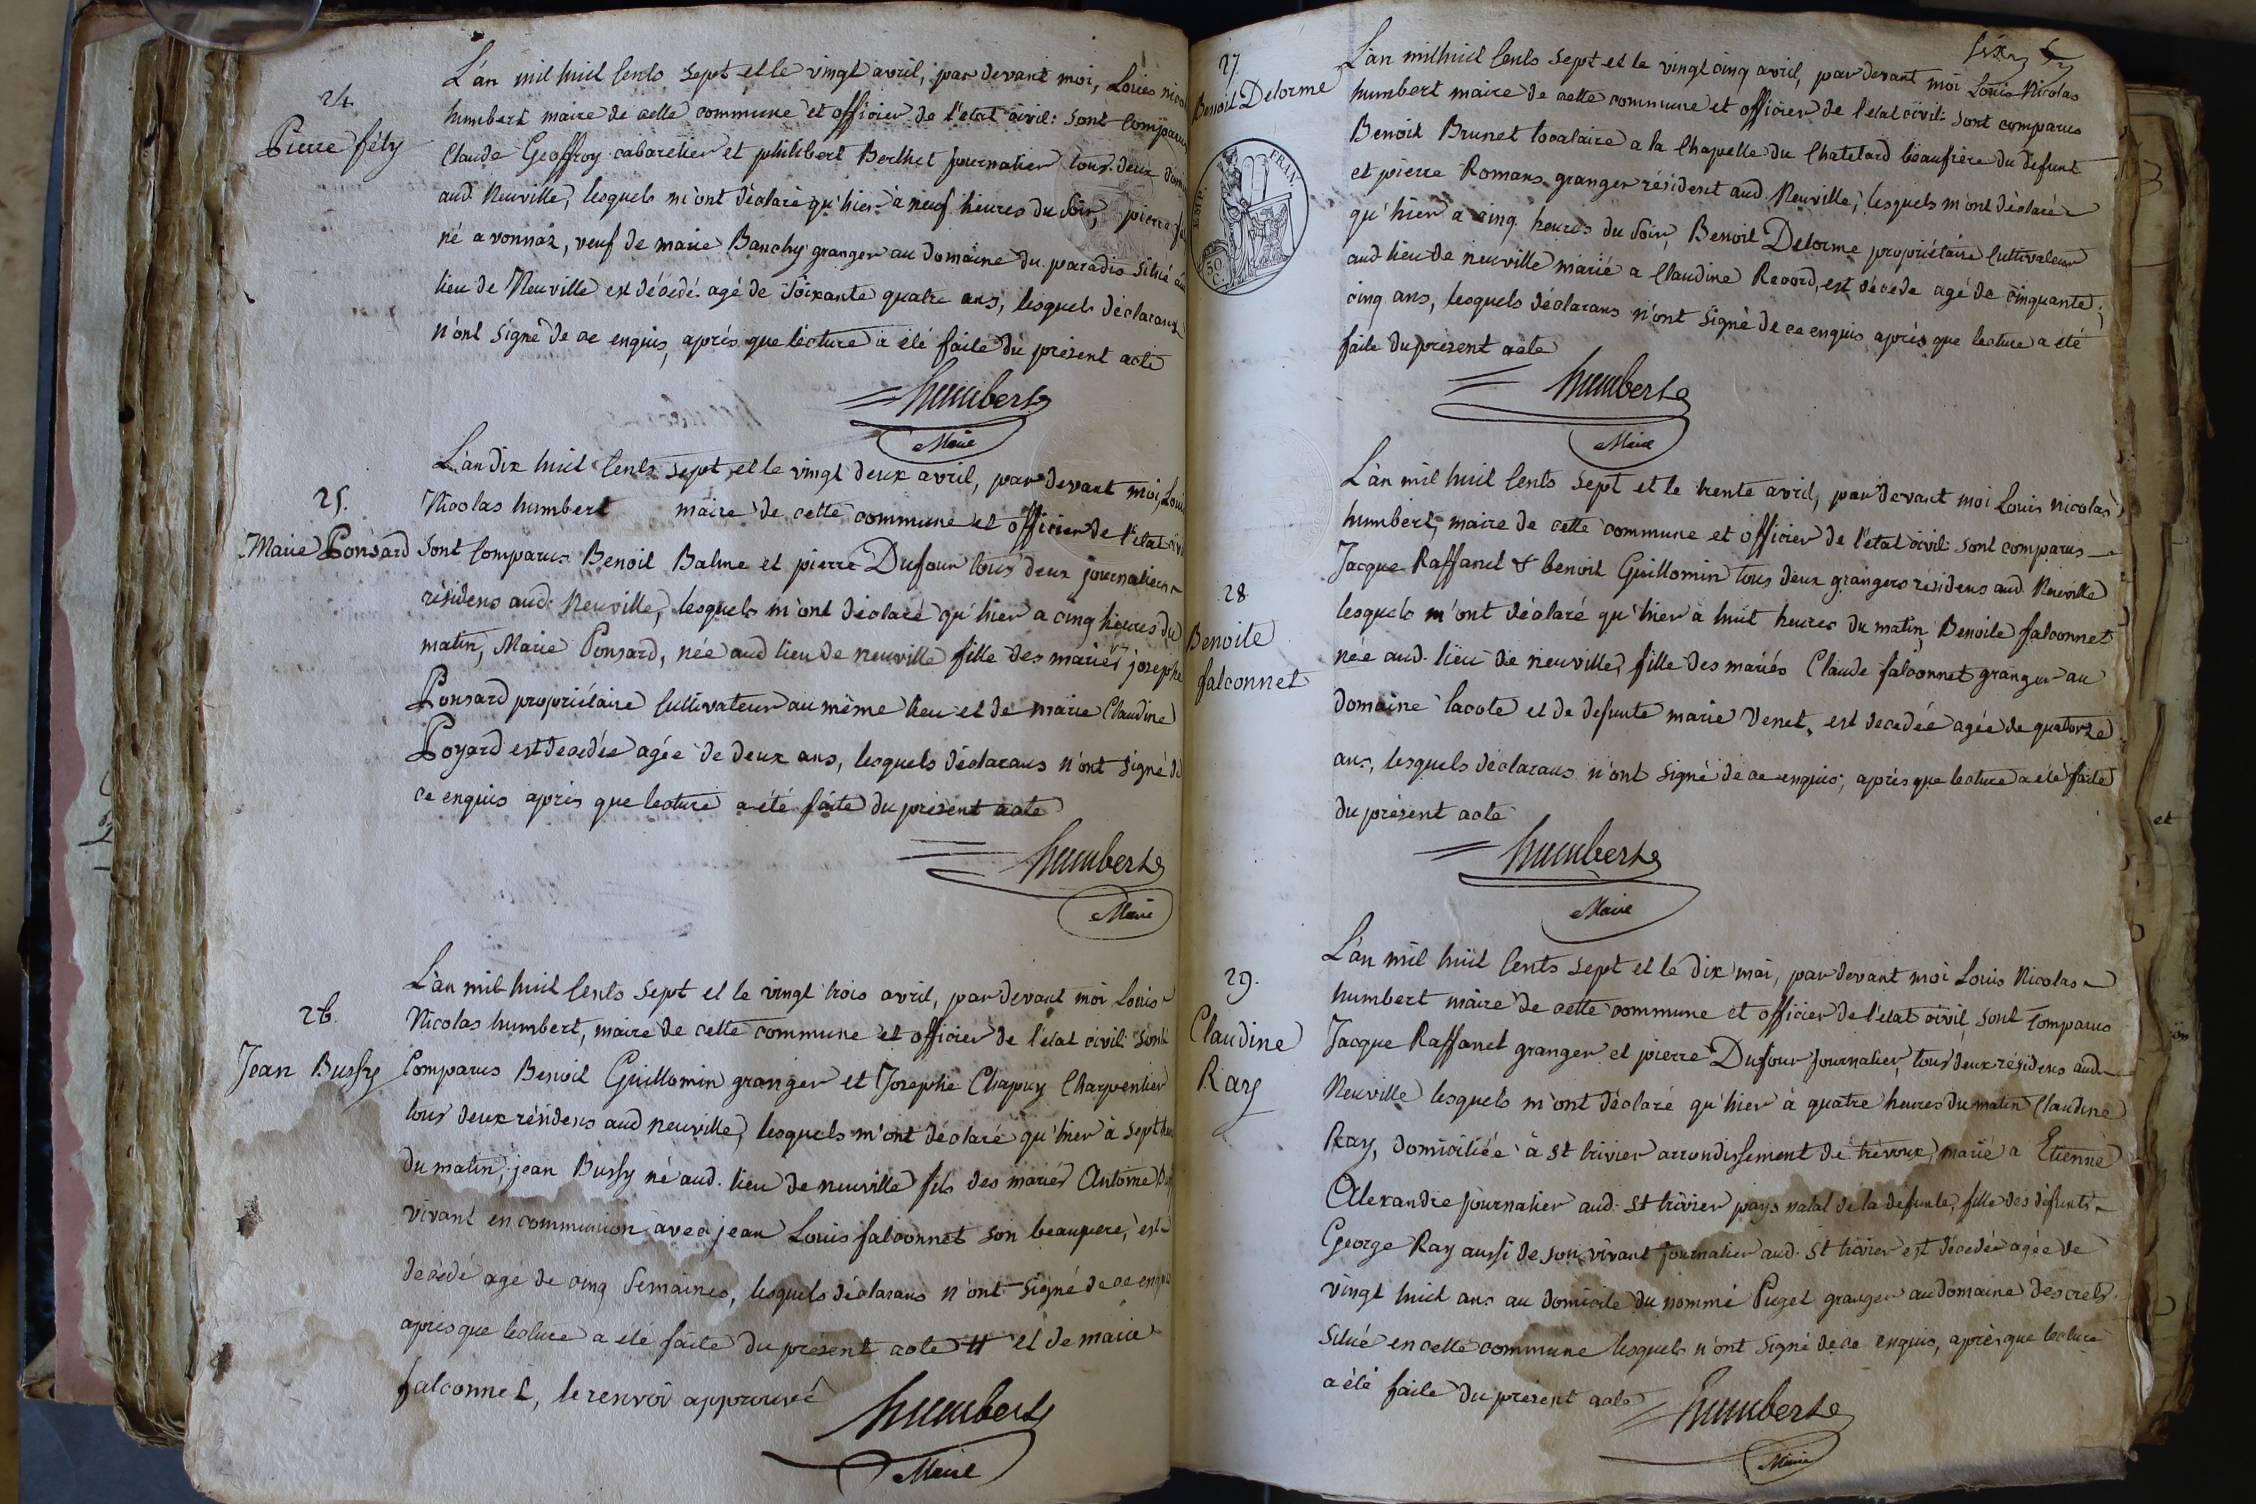 24.
Pierre féty
L'an mil huit Cents sept et le vingt avril, par devant moi, Louis
humbert maire de cette commune et officier de l'état civil: sont comparus
Claude Geoffroy cabaretier et philibert Berthet journalier tous deux
aud. Neuville, lesquels m'ont déclaré qu'hier à neuf heures du soir, pierre
né a vonnaz, veuf de marie Banchy granger au domaine du paradis situé au
lieu de Neuville est décédé agé de soixante quatre ans, lesquels déclarans
n'ont signé de ce enquis, après que lecture a été faite du présent acte
humbert
Maire
25.
Marie Ponsard
L'an dix huit Cents sept et le vingt deux avril, par devant moi, Louis
Nicolas humbert maire de cette commune et officier de l'état
sont Comparus Benoit Balme et pierre Dufour tous deux journaliers
résidens aud. Neuville, lesquels m'ont déclaré qu'hier a cinq heures du
matin, Marie Ponsard, née aud lieu de neuville fille des mariés josephe
Ponsard propriétaire Cultivateur au même lieu et de marie Claudine
Poyard est decedée agée de deux ans, lesquels déclarans n'ont signé de
ce enquis après que lecture a été faite du présent acte
humbert
Maire
26.
Jean Bussy
L'an mil huit Cents sept et le vingt trois avril, par devant moi Louis
Nicolas humbert, maire de cette commune et officier de l'état civil: sont
Comparus Benoit Guillomin granger et Josephe Chapuy Charpentier
tous deux résidens aud neuville, lesquels m'ont déclaré qu'hier à sept
du matin, jean Bussy né aud. lieu de neuville fils des mariés Antoine
vivant en communion avec jean Louis falconnet son beaupere, est
decédé agé de cinq Semaines, lesquels déclarans n'ont signé de ce enquis
apres que lecture a été faite du présent acte # et de marie
falconnet, le renvoi approuvé
humbert
Maire
six
27.
Benoit Delorme
EMP. FRAN.
50 C
L'an mil huit Cents sept et le vingt cinq avril, par devant moi Louis Nicolas
humbert maire de cette commune et officier de l'état civil: sont comparus
Benoit Brunet locataire a la Chapelle du Chatelard beaufrère du defunt
et pierre Romans granger résident aud. Neuville, lesquels m'ont déclaré
qu'hier a cinq heures du soir, Benoit Delorme propriétaire Cultivateur
aud. lieu de neuville marié a Claudine Record, est décédé agé de cinquante
cinq ans, lesquels déclarans n'ont signé de ce enquis après que lecture a été
faite du présent acte
humbert
Maire
28
Benoite
falconnet
L'an mil huit Cents sept et le trente avril, par devant moi Louis nicolas
humbert, maire de cette commune et officier de l'état civil: sont comparus
Jacque Raffanel & benoit Guillomin tous deux grangers résidens aud. Neuville
lesquels m'ont déclaré qu'hier à huit heures du matin, Benoite falconnet
née aud. lieu de neuville, fille des mariés Claude falconnet granger au
domaine lacote et de defunte marie Venet, est decedée agée de quatorze
ans, lesquels déclarans n'ont signé de ce enquis; après que lecture a été faite
du présent acte
humbert
Maire
29.
Claudine
Ray
L'an mil huit Cents sept et le dix mai, par devant moi Louis Nicolas
humbert maire de cette commune et officier de l'état civil, sont Comparus
Jacque Raffanel granger et pierre Dufour Journalier, tous deux résidens aud.
Neuville lesquels m'ont déclaré qu'hier à quatre heures du matin Claudine
Ray, domiciliée à St trivier arrondissement de trévoux, marié a Etienne
Alexandre journalier aud. St trivier pays natal de la défunte, fille des défunts
George Ray aussi de son vivant journalier aud. St trivier est décedée agée de
vingt huit ans au domicile du nommé Puget granger au domaine des crets
Situé en cette commune lesquels n'ont signé de ce enquis, après que lecture
a été faite du présent acte
humbert
Maire